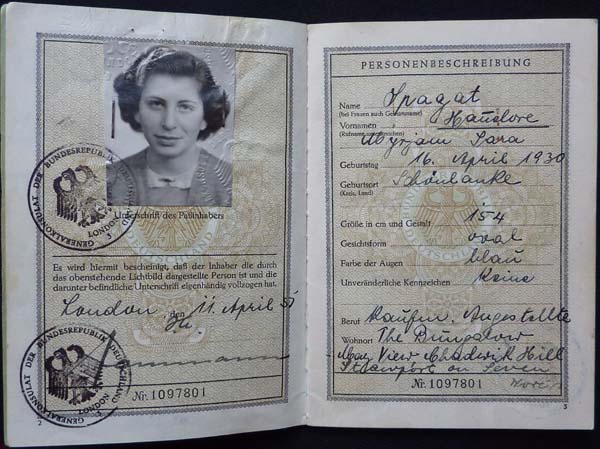 GENERALKONSULAT DER BUNDESREPUBLIK DEUTSCHLAND
LONDON
3
Unterschrift des Paßinhabers
Es wird hiermit bescheinigt, daß der Inhaber die durch
das obenstehende Lichtbild dargestellte Person ist und die
darunter befindliche Unterschrift eigenhändig vollzogen hat.
London, den 11. April
GENERALKONSULAT DER BUNDESREPUBLIK DEUTSCHLAND
LONDON
Nr. 1097801
2
PERSONENBESCHREIBUNG
Name Spagat
(bei Frauen auch Geburtsname)
Vornamen Hannlore
(Rufname unterstreichen) Myrjam Sara
Geburtstag 16. April 1930
Geburtsort Schönlanke
(Kreis, Land)
Größe in cm und Gestalt 154
Gesichtsform oval
Farbe der Augen blau
Unveränderliche Kennzeichen keine
Beruf Kaufm. Angestellte
Wohnort The Bungalow
View Chadwik Hill
Stourport on Seven
Nr. 1097801
3